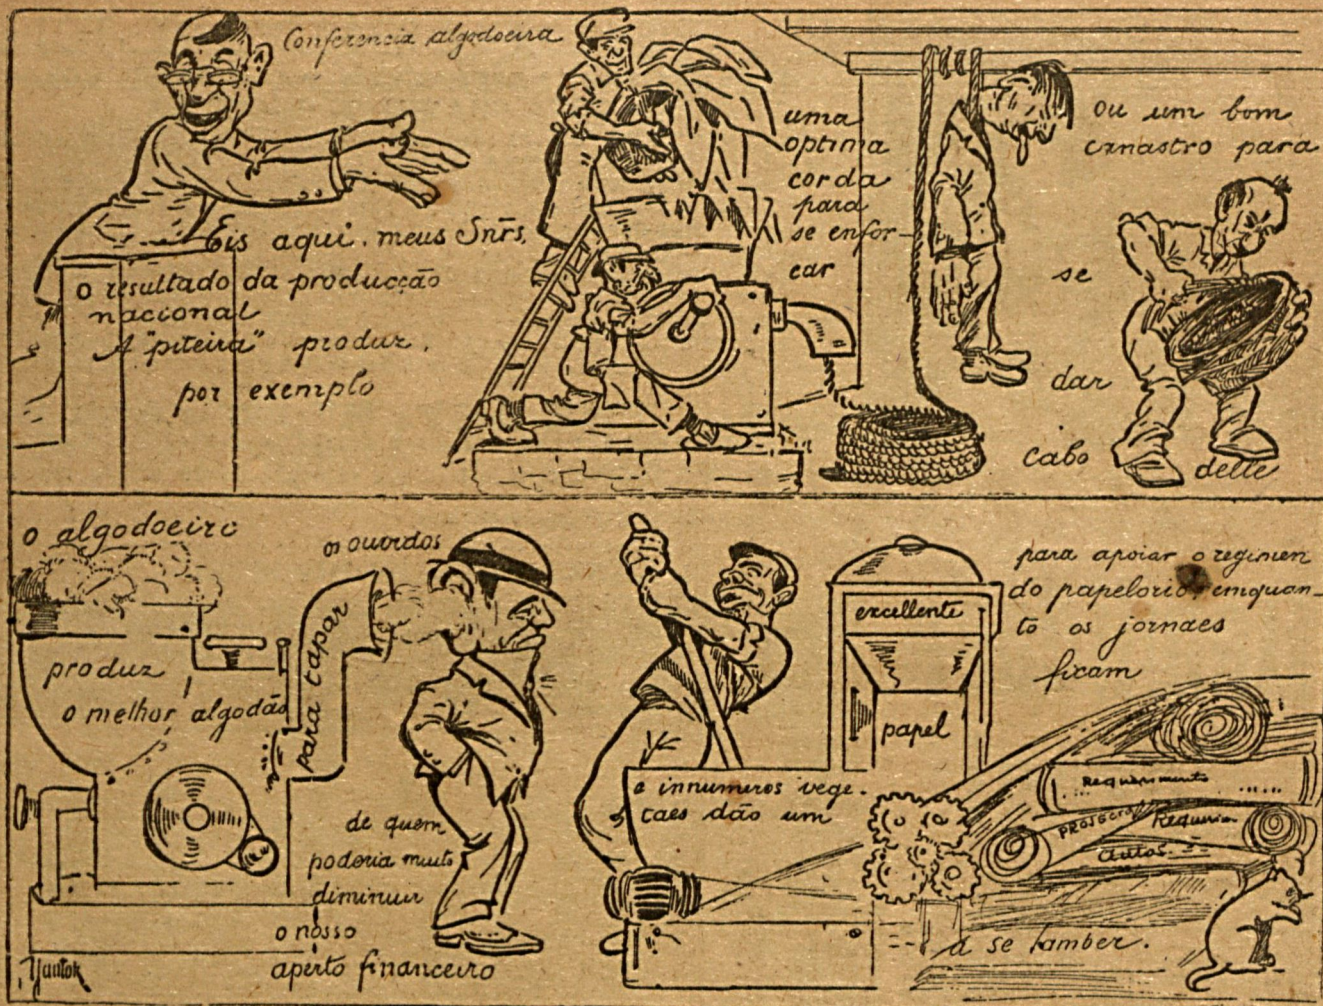 Conferencia algodoeira
Eis aqui, meus Snrs.
o resultado da producção
nacional
A "piteira" produz,
por exemplo
uma
optima
corda
para
se enfor-
car
ou um bom
canastro para
se
dar
cabo delle
o algodoeiro
produz
o melhor algodão
para tapar
os ouvidos
de quem
poderia muito
diminuir
o nosso
aperto financeiro
e innumeros vege-
taes dão um
excellente
papel
para apoiar o regimen
do papelorio, emquan-
to os jornaes
ficam
Requerimento
Requerim
Autos
a se lamber.
Yantok